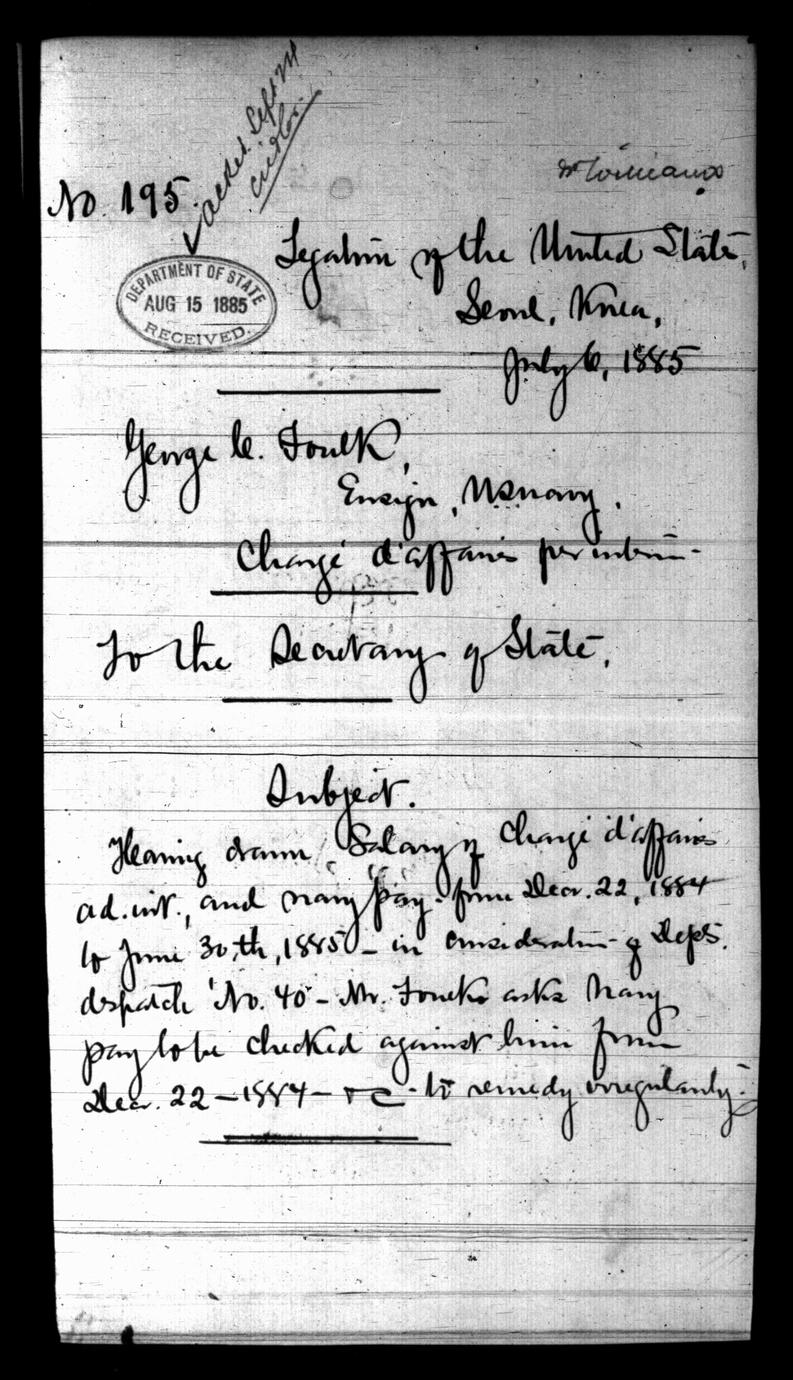 ackd. Sept
No. 195.
DEPARTMENT OF STATE
AUG 15 1885
RECEIVED.
Legation of the United States,
Seoul, Korea,
July 6, 1885
George C. Foulk,
Ensign, U.S. navy,
Chargé d'affaires per interim
To the Secretary of State,
Subject.
Having drawn Salary of Chargé d'affaires
ad. int., and navy pay from Decr. 22, 1884
to June 30th, 1885 – in consideration of Dept's.
despatch No. 40 – Mr. Foulk asks Navy
pay to be checked against him from
Decr. 22 – 1884 – to remedy irregularity.